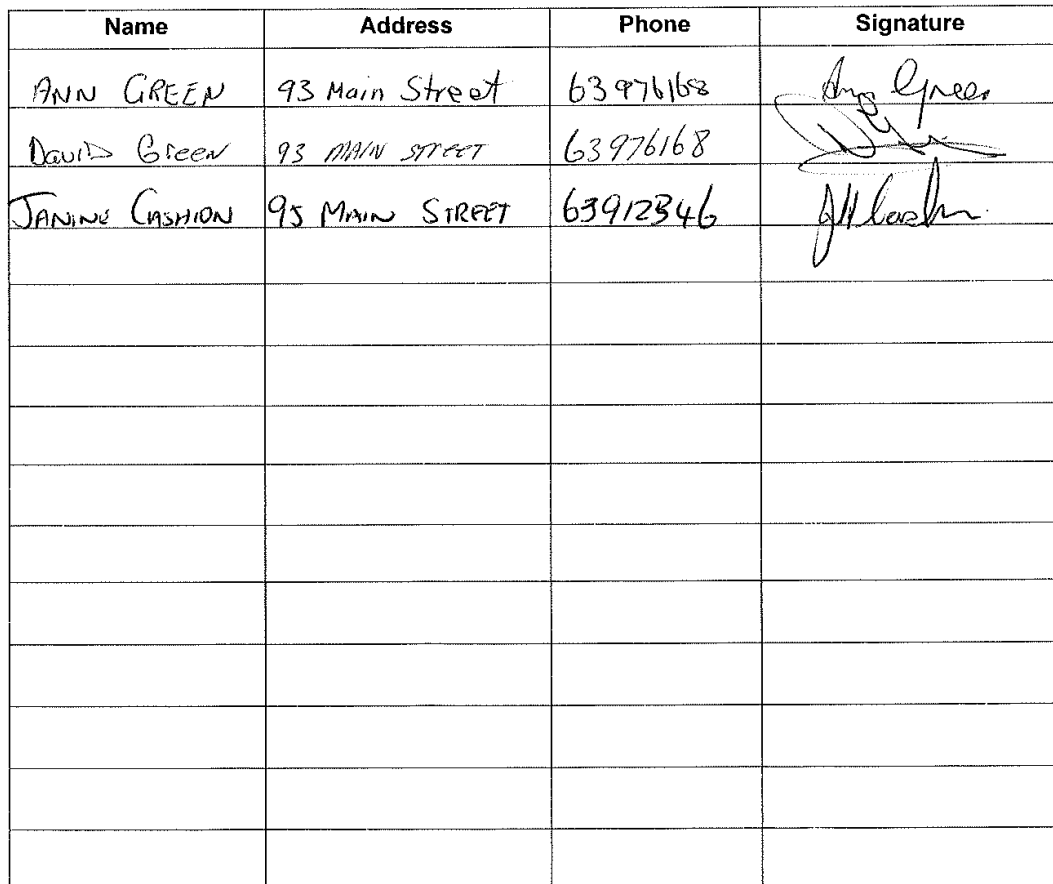 Name Address Phone Signature
ANN GREEN 93 Main Street 63976168 Ann Green
David Green 93 MAIN STREET 63976168
JANINE CASHION 95 MAIN STREET 63912346